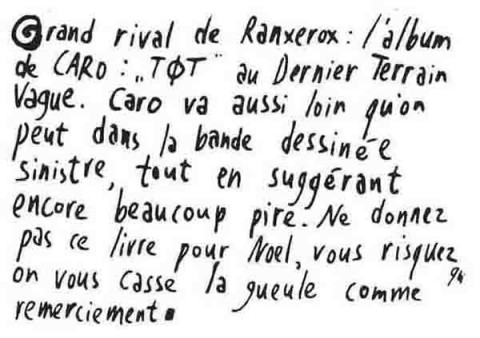 Grand rival de Ranxerox : l'album
de CARO : „TØT" au Dernier Terrain
Vague. Caro va aussi loin qu'on
peut dans la bande dessinée
sinistre, tout en suggérant
encore beaucoup pire. Ne donnez
pas ce livre pour Noel, vous risquez qu'
on vous casse la gueule comme
remerciement.